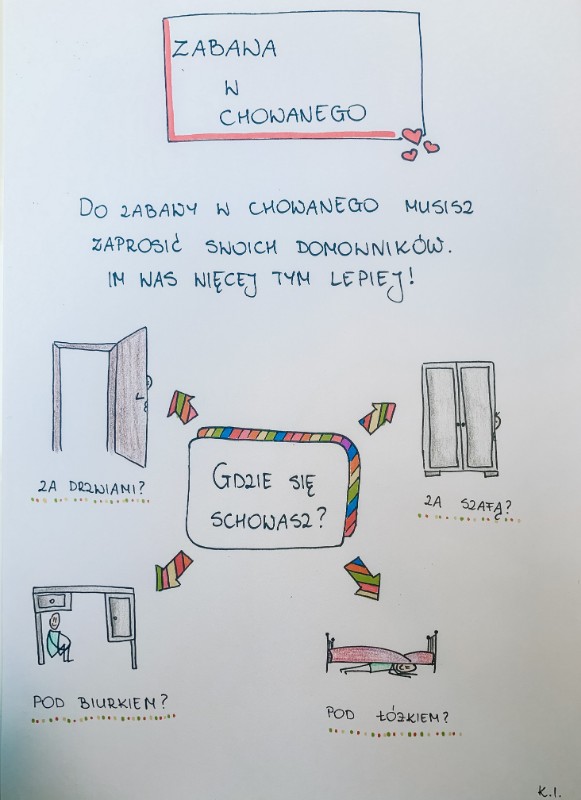 ZABAWA
W
CHOWANEGO
DO ZABAWY W CHOWANEGO MUSISZ
ZAPROSIĆ SWOICH DOMOWNIKÓW.
IM WAS WIĘCEJ TYM LEPIEJ!
ZA DRZWIAMI?
ZA SZAFĄ?
GDZIE SIĘ
SCHOWASZ?
POD BIURKIEM?
POD ŁÓŻKIEM?
K.I.